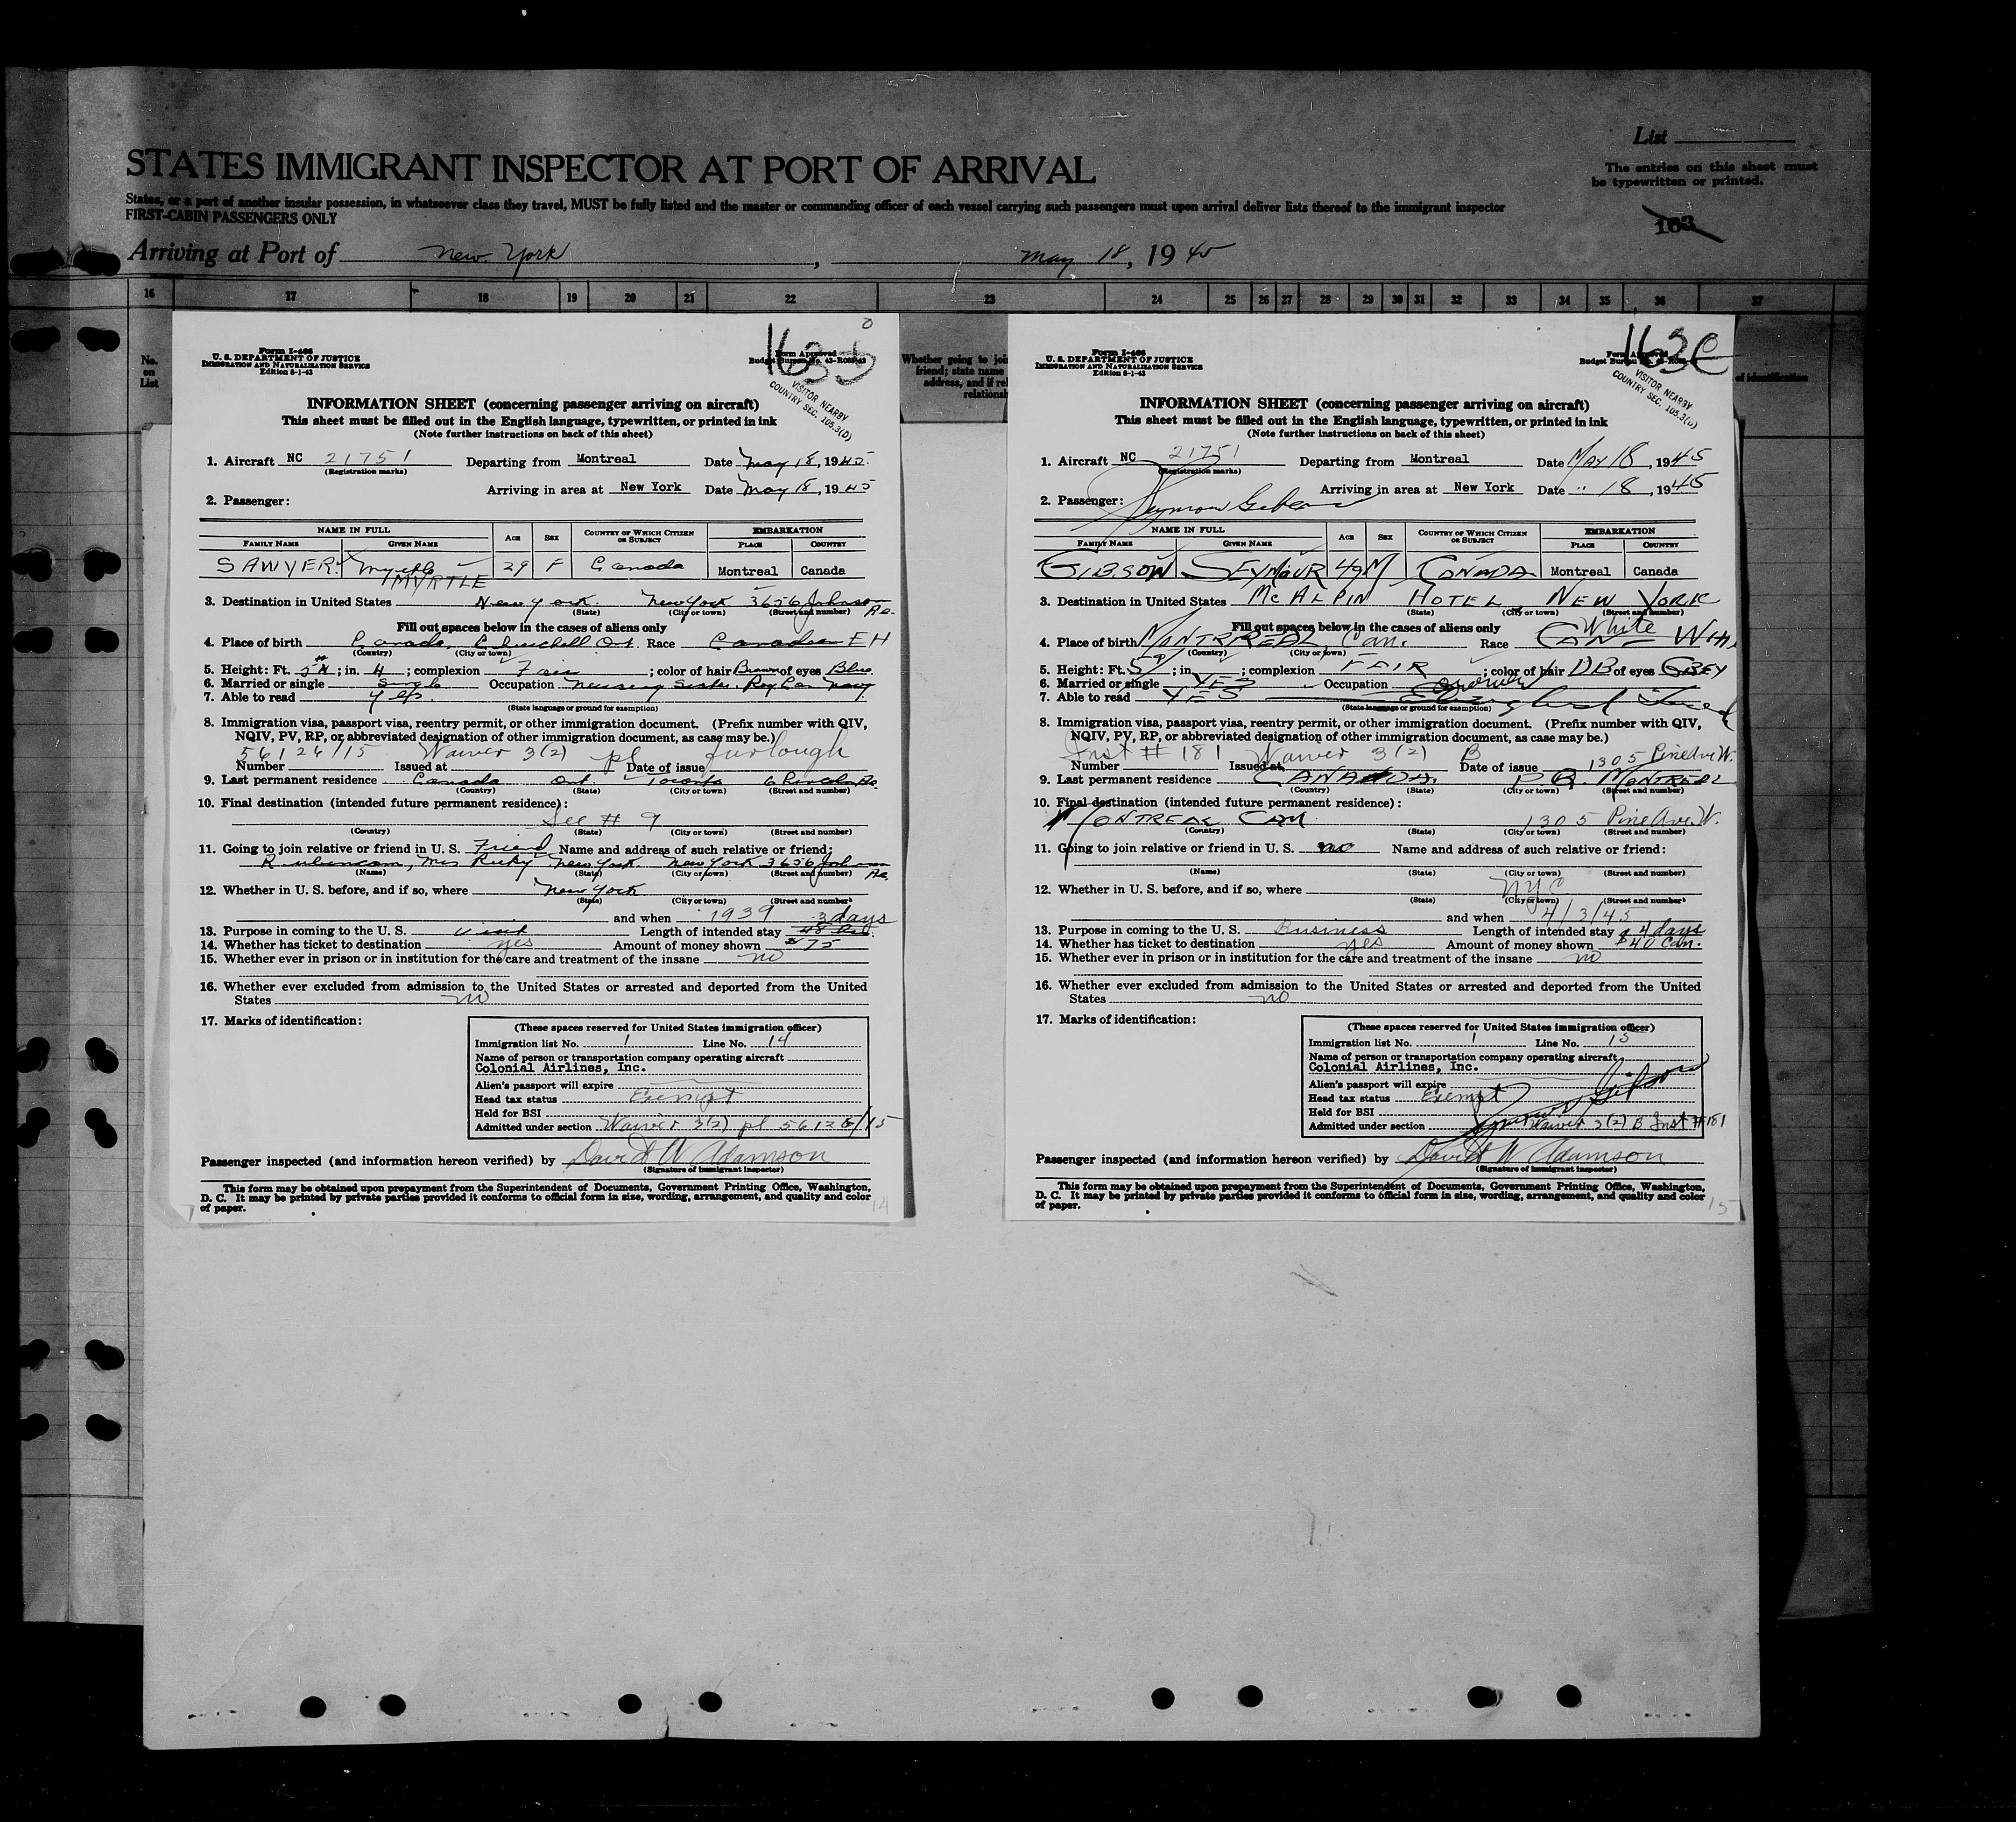 List
STATES IMMIGRANT INSPECTOR AT PORT OF ARRIVAL
The entries on this sheet must
be typewritten or printed.
States, or a port of another insular possession, in whatsoever class they travel, MUST be fully listed and the master or commanding officer of each vessel carrying such passengers must upon arrival deliver lists thereof to the immigrant inspector
FIRST-CABIN PASSENGERS ONLY
163
Arriving at Port of New York, May 18, 1945
16 17 18 19 20 21 22 23 24 25 26 27 28 29 30 31 32 33 34 35 36 37
No.
on
List
Whether going to joi
friend; state name
address, and if rel
relationsh
of identification
Form I-466
U. S. DEPARTMENT OF JUSTICE
IMMIGRATION AND NATURALIZATION SERVICE
Edition 8-1-43
Form Approved
Budget Bureau No. 43-R065-42
163 b
VISITOR NEARBY
COUNTRY SEC. 105.3(D)
INFORMATION SHEET (concerning passenger arriving on aircraft)
This sheet must be filled out in the English language, typewritten, or printed in ink
(Note further instructions on back of this sheet)
1. Aircraft NC 21751 Departing from Montreal Date May 18, 1945
(Registration marks)
Arriving in area at New York Date May 18, 1945
2. Passenger:
NAME IN FULL AGE SEX COUNTRY OF WHICH CITIZEN OR SUBJECT EMBARKATION
FAMILY NAME GIVEN NAME PLACE COUNTRY
SAWYER Myrtle MYRTLE 29 F Canada Montreal Canada
3. Destination in United States New York. New York 3656 Johnson Av.
(State) (City or town) (Street and number)
Fill out spaces below in the cases of aliens only
4. Place of birth Canada, Churchill Ont. Race Canadian EH
(Country) (City or town)
5. Height: Ft. 5; in. 4; complexion Fair; color of hair Brown of eyes Blue
6. Married or single Single Occupation Nursing Sister. Roy Can Navy
7. Able to read yes
(State language or ground for exemption)
8. Immigration visa, passport visa, reentry permit, or other immigration document. (Prefix number with QIV,
NQIV, PV, RP, or abbreviated designation of other immigration document, as case may be.)
56126/15 Waiver 3(2) pl furlough
Number Issued at Date of issue
9. Last permanent residence Canada Ont. Toronto
(Country) (State) (City or town) (Street and number)
10. Final destination (intended future permanent residence):
See # 9
(Country) (State) (City or town) (Street and number)
11. Going to join relative or friend in U. S. Friend Name and address of such relative or friend:
Rubincam, Mrs Ruby New York New York 3656 Johnson Av.
(Name) (State) (City or town) (Street and number)
12. Whether in U. S. before, and if so, where New York
(State) (City or town) (Street and number)
and when 1939 3 days
13. Purpose in coming to the U. S. visit Length of intended stay 48 hrs.
14. Whether has ticket to destination yes Amount of money shown $75
15. Whether ever in prison or in institution for the care and treatment of the insane no
16. Whether ever excluded from admission to the United States or arrested and deported from the United
States no
17. Marks of identification:
(These spaces reserved for United States immigration officer)
Immigration list No. 1 Line No. 14
Name of person or transportation company operating aircraft
Colonial Airlines, Inc.
Alien's passport will expire
Head tax status Exempt
Held for BSI
Admitted under section Waiver 3(2) pl 56126/15
Passenger inspected (and information hereon verified) by David W Adamson
(Signature of immigrant inspector)
This form may be obtained upon prepayment from the Superintendent of Documents, Government Printing Office, Washington,
D. C. It may be printed by private parties provided it conforms to official form in size, wording, arrangement, and quality and color
of paper.
14
Form I-466
U. S. DEPARTMENT OF JUSTICE
IMMIGRATION AND NATURALIZATION SERVICE
Edition 8-1-43
Form Approved
Budget Bureau No.
163 c
VISITOR NEARBY
COUNTRY SEC. 105.3(D)
INFORMATION SHEET (concerning passenger arriving on aircraft)
This sheet must be filled out in the English language, typewritten, or printed in ink
(Note further instructions on back of this sheet)
1. Aircraft NC 21751 Departing from Montreal Date MAY 18, 1945
(Registration marks)
Arriving in area at New York Date " 18, 1945
2. Passenger: Seymour Gibson
NAME IN FULL AGE SEX COUNTRY OF WHICH CITIZEN OR SUBJECT EMBARKATION
FAMILY NAME GIVEN NAME PLACE COUNTRY
GIBSON SEYMOUR 49 M CANADA Montreal Canada
3. Destination in United States MCALPIN HOTEL NEW YORK
(State) (City or town) (Street and number)
Fill out spaces below in the cases of aliens only
4. Place of birth MONTREAL, Can. Race White
(Country) (City or town)
5. Height: Ft. 5; in. 9; complexion FAIR; color of hair DB of eyes GREY
6. Married or single YES Occupation
7. Able to read YES
(State language or ground for exemption)
8. Immigration visa, passport visa, reentry permit, or other immigration document. (Prefix number with QIV,
NQIV, PV, RP, or abbreviated designation of other immigration document, as case may be.)
Inst # 181 Waiver 3(2) B 1305 Pine Ave W.
Number Issued at Date of issue
9. Last permanent residence CANADA. P Q. MONTREAL
(Country) (State) (City or town) (Street and number)
10. Final destination (intended future permanent residence):
MONTREAL CAN 1305 Pine Ave W.
(Country) (State) (City or town) (Street and number)
11. Going to join relative or friend in U. S. no Name and address of such relative or friend:
(Name) (State) (City or town) (Street and number)
12. Whether in U. S. before, and if so, where NYC
(State) (City or town) (Street and number)
and when 4/3/45
13. Purpose in coming to the U. S. Business Length of intended stay 4 days
14. Whether has ticket to destination yes Amount of money shown $40 Can.
15. Whether ever in prison or in institution for the care and treatment of the insane no
16. Whether ever excluded from admission to the United States or arrested and deported from the United
States no
17. Marks of identification:
(These spaces reserved for United States immigration officer)
Immigration list No. 1 Line No. 15
Name of person or transportation company operating aircraft
Colonial Airlines, Inc.
Alien's passport will expire
Head tax status Exempt
Held for BSI
Seymour Gibson
Admitted under section Waiver 3(2) B Inst #181
Passenger inspected (and information hereon verified) by David W Adamson
(Signature of immigrant inspector)
This form may be obtained upon prepayment from the Superintendent of Documents, Government Printing Office, Washington,
D. C. It may be printed by private parties provided it conforms to official form in size, wording, arrangement, and quality and color
of paper.
15